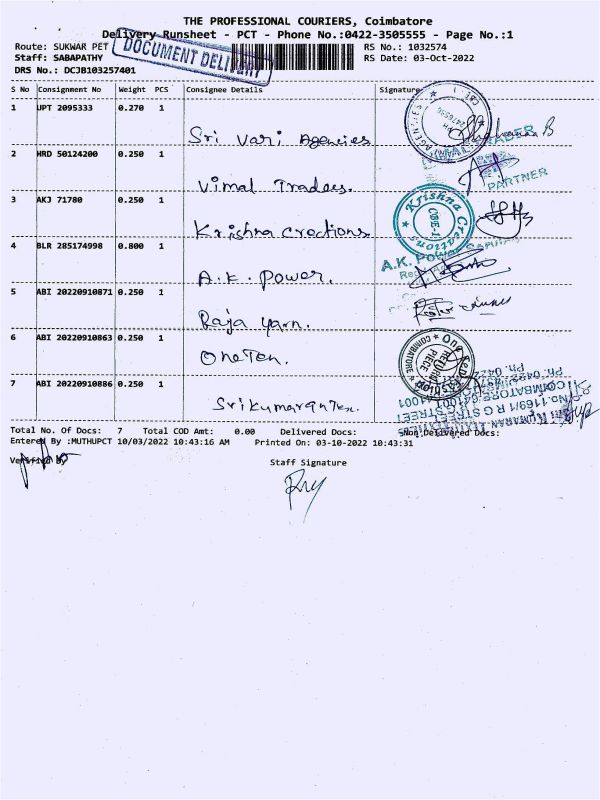 THE PROFESSIONAL COURIERS, Coimbatore
Delivery Runsheet - PCT - Phone No.:0422-3505555 - Page No.:1
Route: SUKWAR PET
DOCUMENT DELIVERY
RS No.: 1032574
Staff: SABAPATHY
RS Date: 03-Oct-2022
DRS No.: DCJB103257401
S No Consignment No Weight PCS Consignee Details Signature
1 UPT 2095333 0.270 1
Sri Vari Agencies
2 HRD 50124200 0.250 1
Vimal Traders.
PARTNER
3 AKJ 71780 0.250 1
Krishna Creations
Krishna Creations
4 BLR 285174998 0.800 1
A.K. Power.
A.K. Power
5 ABI 20220910871 0.250 1
Raja yarn.
6 ABI 20220910863 0.250 1
OneTen.
COIMBATORE
7 ABI 20220910886 0.250 1
Srikumaran Tex.
No.1169/1 R G STREET
COIMBATORE-641001
Total No. Of Docs: 7 Total COD Amt: 0.00 Delivered Docs: Non Delivered Docs:
Entered By :MUTHUPCT 10/03/2022 10:43:16 AM Printed On: 03-10-2022 10:43:31
Verified By
Staff Signature